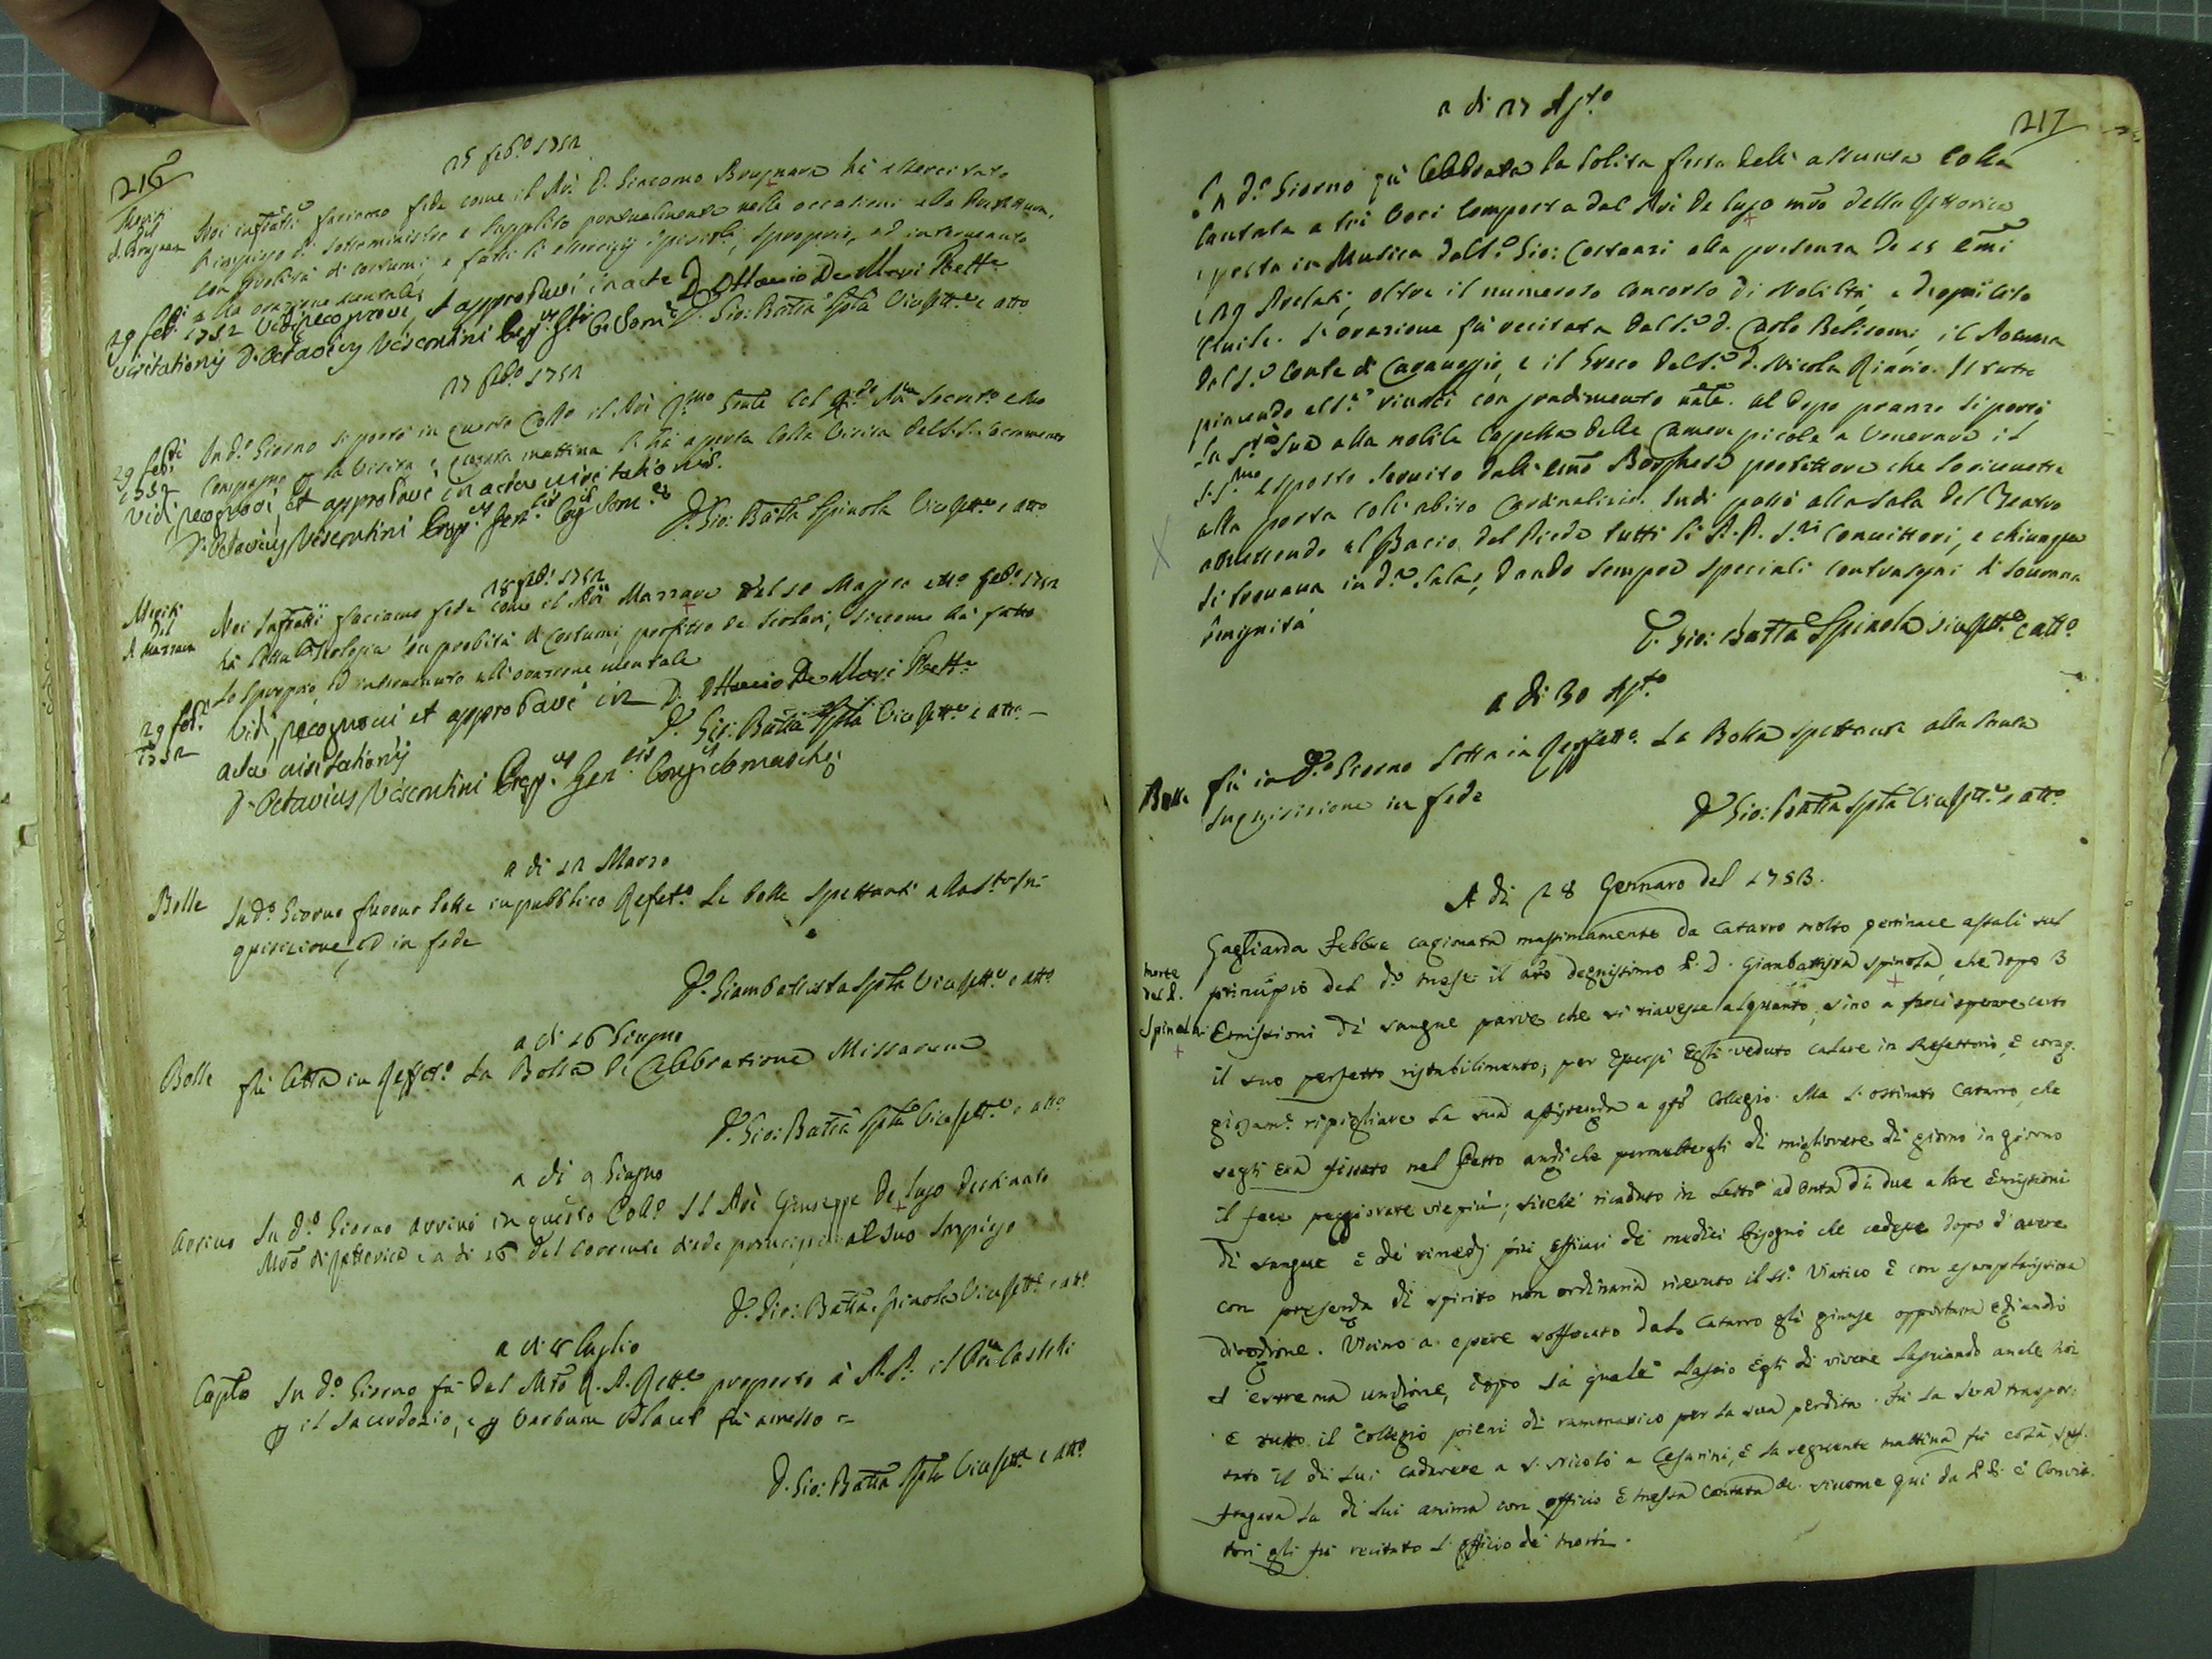 216
25 feb.º 1752
Meriti
del
d. Brugnara
Noi infratti facciamo fede come il Pre D. Giacomo Brugnara hà esercitato
l'impiego di sottoministro e supplito pontualmente nelle occasioni alla Prefettura,
con probità di costumi, e fatti li esercizij spirituali, sproprio, ed intervenuto
alla orazione mentale
D. Ottavio De Mari Rett.e
29 feb. 1752 Vidi, recognovi, et approbavi in acta
D. Gio: Batta Spla ViceRett.e e att.o
visitationis D. Octavius Vicecomini
27 feb.º 1752
In d.º Giorno si portò in questo Coll.o il
Compagno la Visita, e questa mattina si hà aperta colla Visita del
29 feb.
1752
vidi, recognovi, et approbavi in acta visitationis.
D. Gio: Batta Spinola ViceRett.e e att.o
28 feb.º 1752
Meriti
del
Noi Infratti facciamo fede come il Pre
hà letta Teologia con probità di costumi, profitto de scolari, siccome hà fatto
lo sproprio, ed intervenuto all'orazione mentale
D. Ottavio De Mari Rett.e
29 feb.
1752
vidi, recognovi et approbavi in
D. Gio: Batta Spla Vice Rett.e e att.o
acta visitationis
a di 12 Marzo
Bolle
In d.º Giorno furono lette in pubblico Refet.º le bolle spettanti alla S.ta In=
quisizione, ed in fede
D. Giambattista Spla Vice Rett.e e att.o
a di 16 Giugno
Bolle
fù letta in Reffet.º la Bolla De Celebratione Missarum
D. Gio: Batta Spla ViceRett.e e att.o
a di 9 Giugno
Arrivo
In d.º Giorno arrivò in questo Coll.o Il Pre Giuseppe De Lugo destinato
Mro di Rettorica e a di 16 del corrente diede principio al suo Impiego
D. Gio: Batta Spinola ViceRett.e e att.o
a di 8 Luglio
Caplo
In d.º Giorno fù dal Mto R. P. Rett.e proposto à PP. il Pre Castelli
p il sacerdozio, e p verbum Placet fù amesso =
D. Gio: Batta Spla ViceRett.e e att.o
217
a di 27 Ag.to
In d.º Giorno fù Celebrata la solita festa dell'assunta colla
Cantata a trè Voci composta dal Pre De Lugo mro della Rettorica
e posta in Musica dal S.r Gio: Costanzi alla presenza de 15 Emi
e 29 Prelati, oltre il numeroso concorso di Nobiltà, e
Civile. L'orazione fù recitata dal S.r d. Carlo Belisomi, il Poema
dal S.r Conte di Caravaggio, e il Greco dal S.r d. Nicola Riario. Il tutto
piacendo riuscì con gradimento
Sua alla nobile Cappella delle Camere picole a Venerare il
esposto servito dall'Emo Borghese protettore che lo ricevette
alla porta coll'abito Cardinalizio. Indi passò alla sala del Teatro
ammettendo al Bacio del Piede tutti li P.P. S.ri Convittori, e chiunque
si trovava in d.a sala, dando sempre speciali contrasegni di sovrana
benignità
D. Gio: Batta Spinola viceRett.e e att.o
a di 30 Ag.to
Bolla
fù in d.º Giorno letta in Reffett.º la Bolla spettante alla Santa
Inquisizione in fede
D. Gio: Batta Spla ViceRett.e e att.o
A di 28 Gennaro del 1753.
morte
del P.
Spinola.
Gagliarda Febbre cagionata massimamente da Catarro molto pertinace assalì sul
principio del d.º mese il nro degnissimo P. D. Giambattista Spinola, che dopo 3
Emissioni di sangue parve che si riavesse alquanto, sino a farci sperare certo
il suo perfetto ristabilimento; per essersi Egli veduto calare in Refettorio, e corag=
giosam.e ripigliare la sua assistenza a qsto Collegio. Ma l'ostinato Catarro, che
segli era fissato nel Petto anziche permettergli di migliorare di giorno in giorno
il fece peggiorare vie più; sicchè ricaduto in Letto ad onta di due altre Emissioni
di sangue e de rimedj più efficaci de medici bisognò che cedesse dopo d'avere
con presenza di spirito non ordinaria ricevuto il SS.º Viatico e con esemplarissima
divozione. Vicino a essere soffocato dal Catarro gli giunse opportuna eziandio
l'estrema unzione, dopo la quale lasciò Egli di vivere lasciando anche noi
e tutto il Collegio pieni di rammarico per la sua perdita. Fù la sera traspor=
tato il di lui cadavere a S. Nicolò a Cesarini, e la seguente mattina fù colà suf=
fragata la di lui anima con officio e messa cantata &c. siccome qui da PP. e Convit=
tori gli fù recitato l'officio de morti.